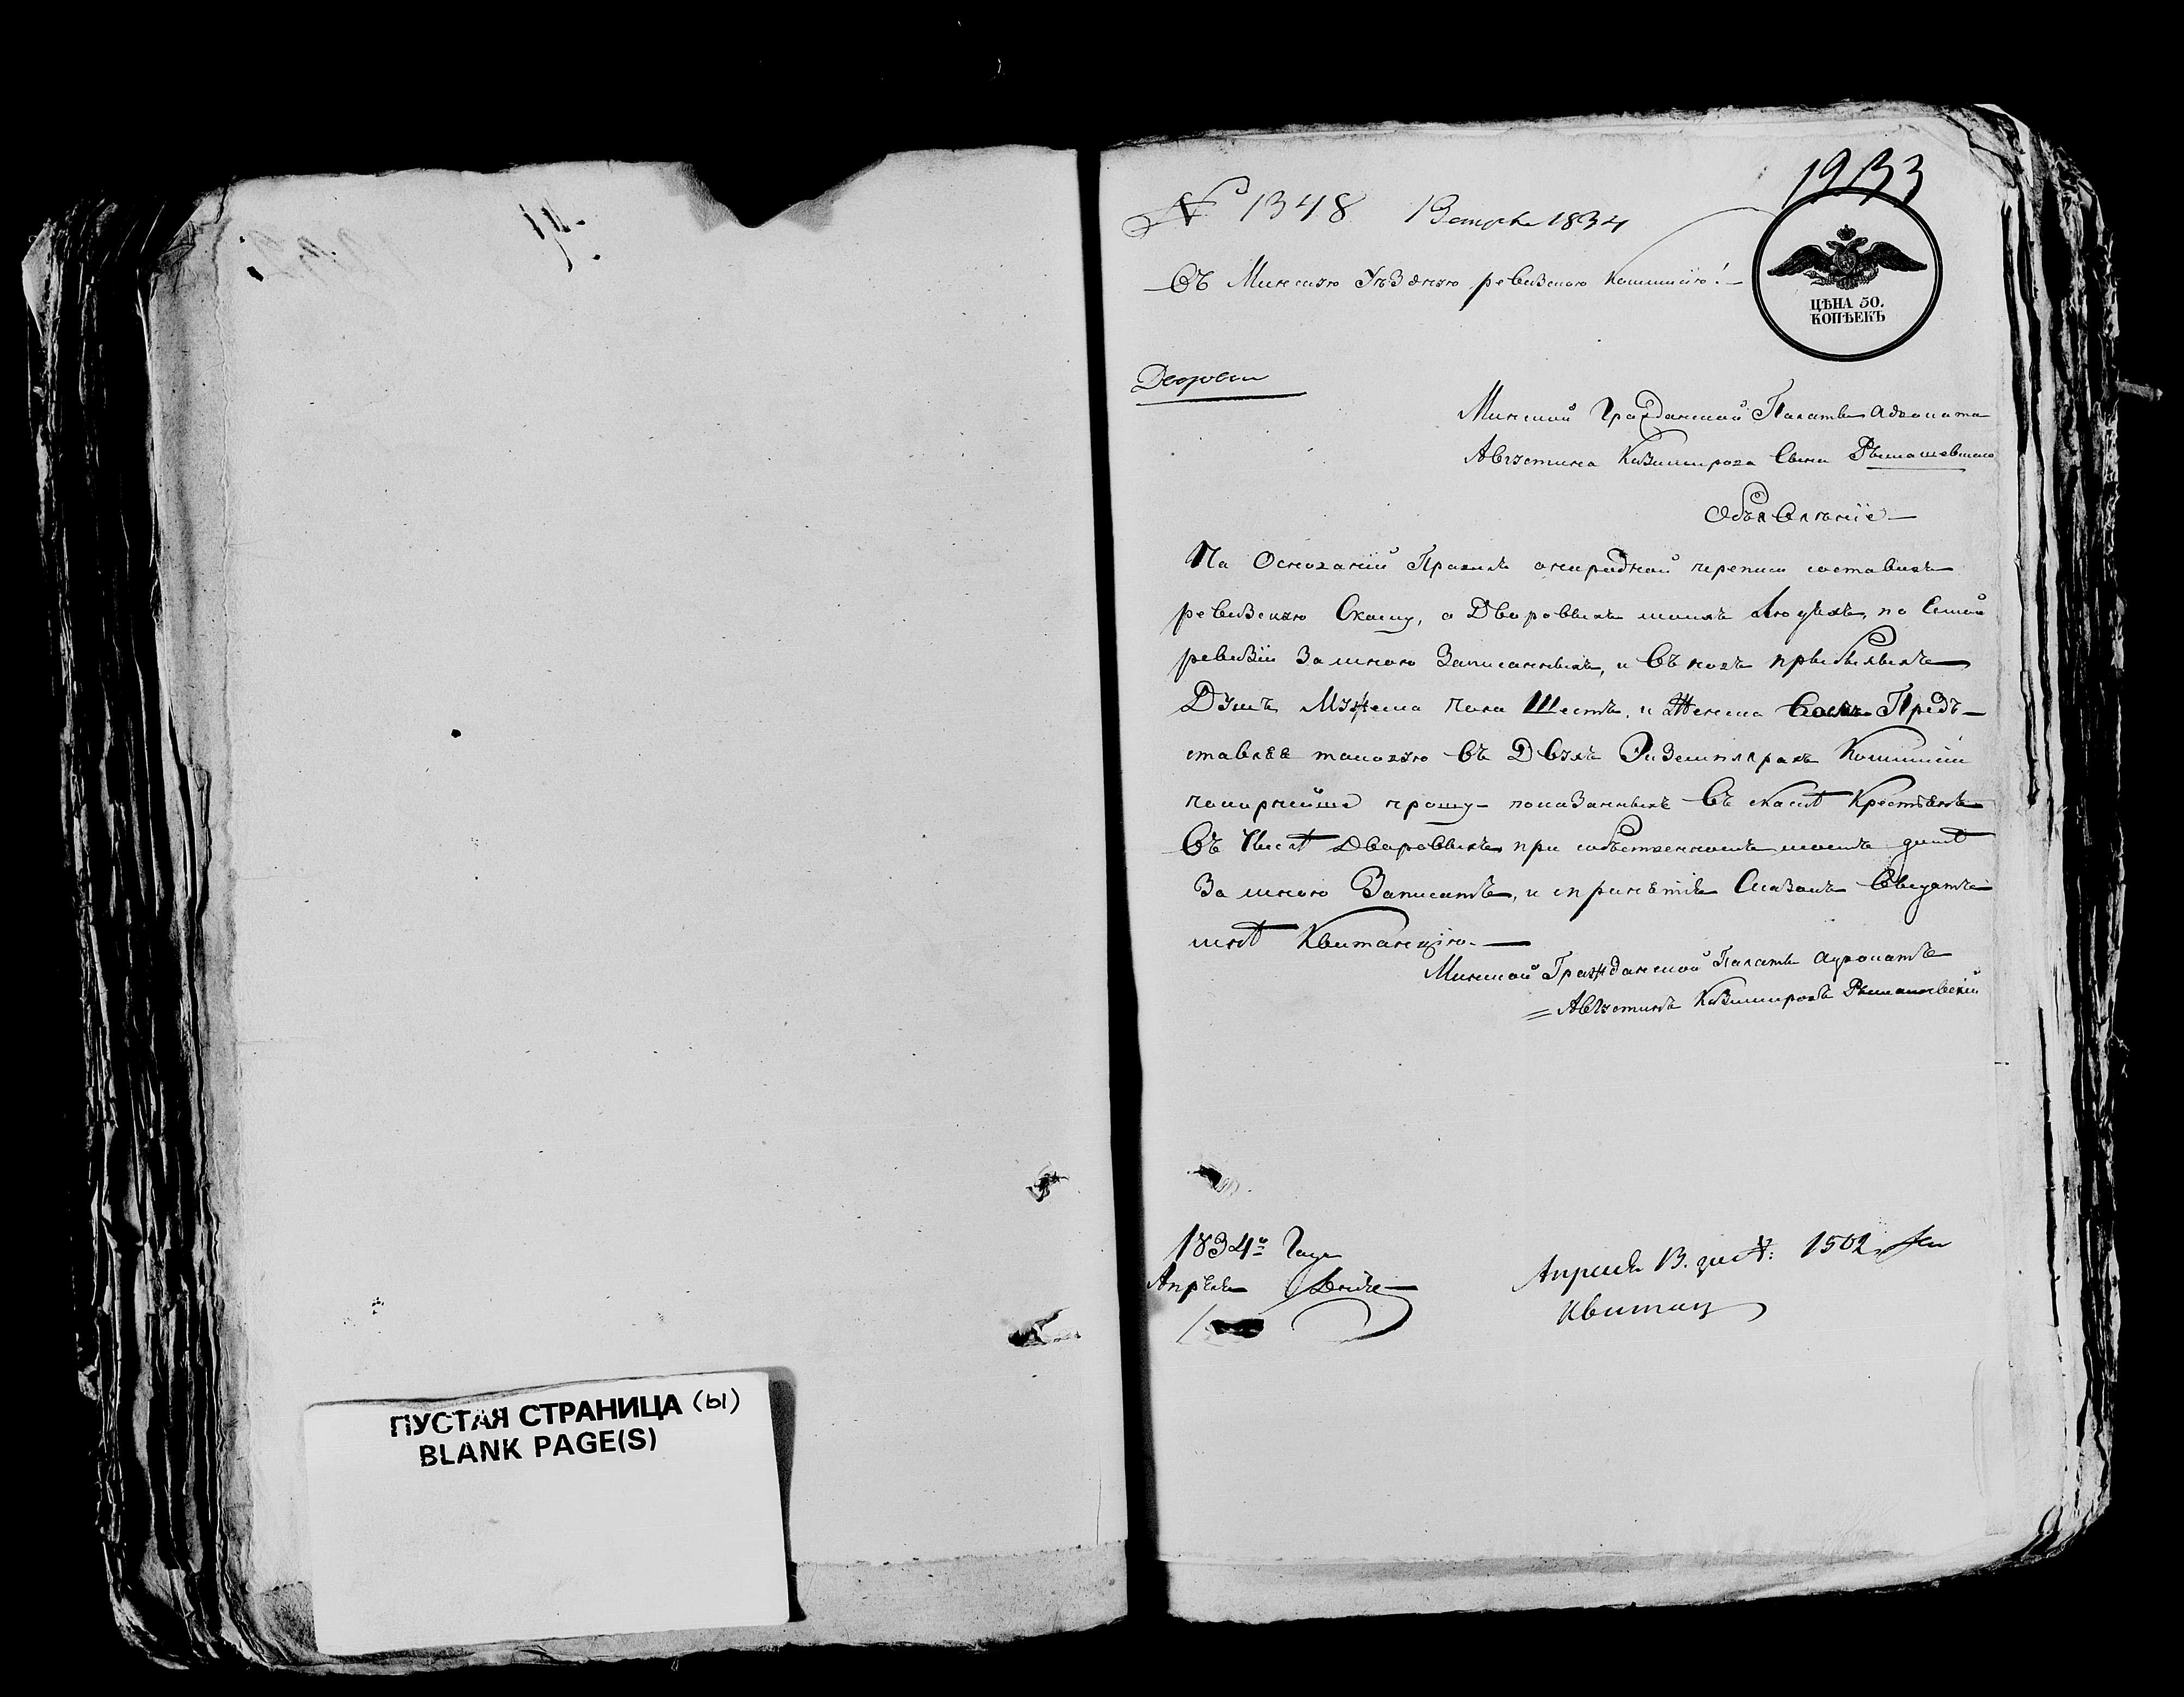 1933
№ 1348 13 апреля 1834
Въ Минскую Уѣздную ревизскую Коммисію!
ЦѢНА 50.
КОПѢЕКЪ
Минской Гражданской Палаты Адвоката
Августина Казимирова Сына
Объявленіе
На Основаніи Правилъ очередной переписи составивъ
ревизскую Скаску, о Дворовыхъ моихъ Людяхъ, по 7мой
ревизіи За мною Записанныхъ, и Въ новъ прыбылыхъ
Душъ Мужеска пола Шесть, и Женска Предъ-
ставляя таковую Въ Двухъ Экземплярахъ Коммисіи
покорнѣйше прошу показанныхъ Въ скаскѣ Крестьянъ
Въ Числѣ Дворовыхъ при собственномъ моемъ домѣ
За мною Записать, и Сказокъ Выдать
мнѣ Квитанцію.
Минской Гражданской Палаты Адвокатъ
Августинъ Казимировъ
1834го Года
Апрѣля Дня
Апреля 13. дня: 1502
Квитанц
ПУСТАЯ СТРАНИЦА (Ы)
BLANK PAGE(S)